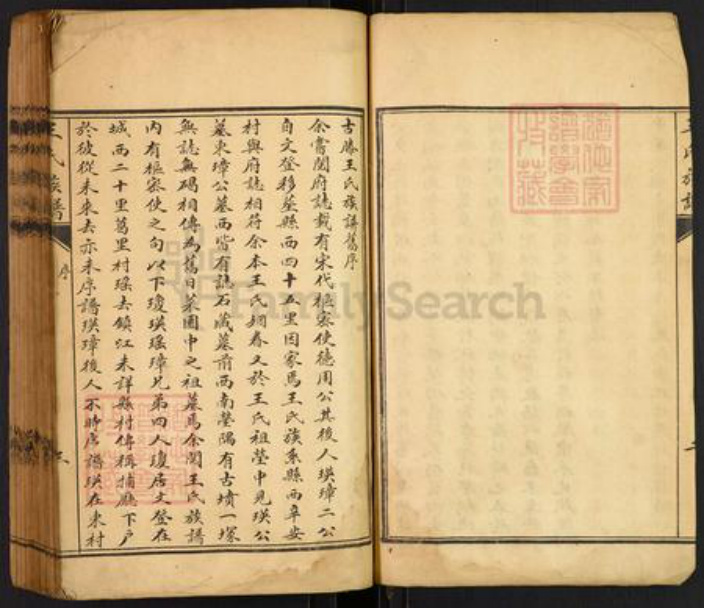 古滕王氏族譜舊序
余嘗閱府誌載有宋代樞密使德用公其後人瑛璋二公
自文登移墓縣西四十五里因家焉王氏族系縣西辛安
村與府誌相符余本王氏姻眷又於王氏祖塋中見瑛公
墓東璋公墓西皆有誌石藏墓前西南塋隅有古墳一塚
無誌無碣相傳為舊日菜園中之祖墓焉余閱王氏族譜
內有樞密使之句以下瓊瑛瑶璋兄弟四人瓊居文登在
城西二十里葛里村瑶去鎮江未詳縣村俾稱捕廳下戶
於彼從未來去亦未序譜瑛璋後人不時序譜瑛在東村
王氏族譜
序
王氏族譜
FamilySearch